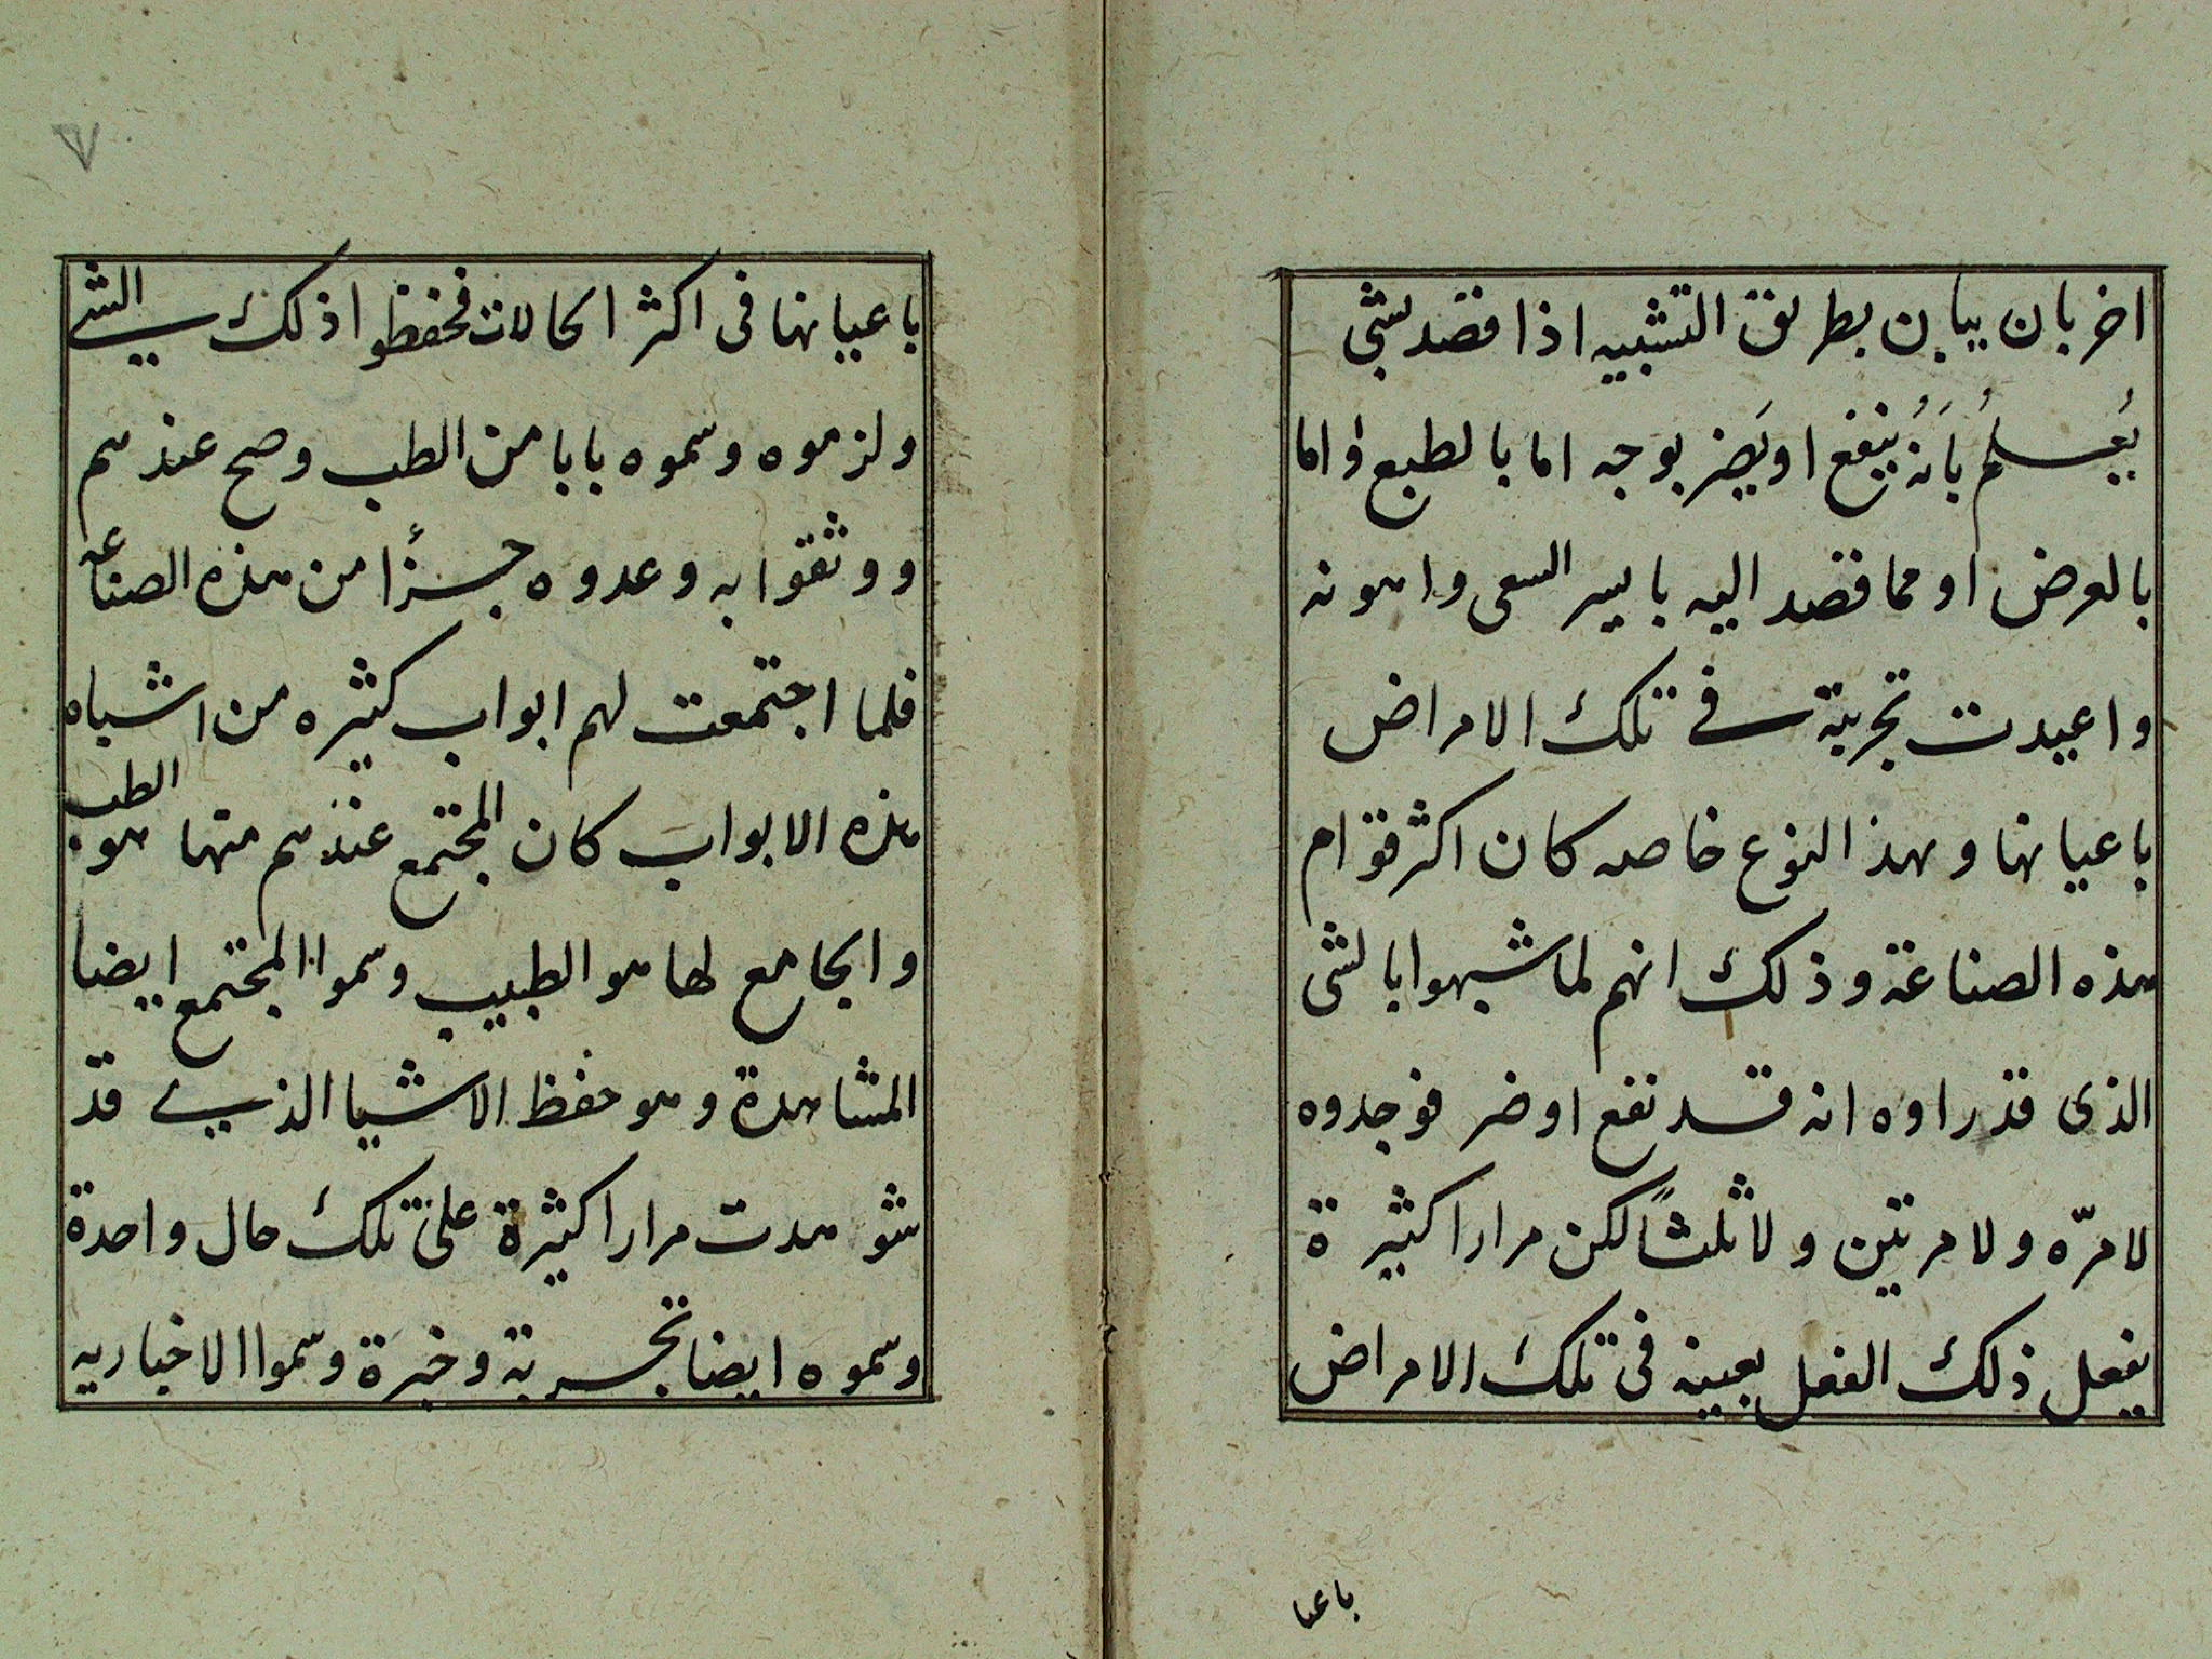 اخر بان يباين بطريق التشبيه اذا قصد بشى
يُعلمُ بَانهُ ينفع او يَضر بوجه اما بالطبع واما
بالعرض او مما قصد اليه بايسر السعى واهونه
واعيدت تجربته فى تلك الامراض
باعيانها وبهذا النوع خاصه كان اكثر قوام
هذه الصناعة وذلك انهم لما شبهوا بالشى
الذى قد راوه انه قد نفع او ضر فوجدوه
لا مرّه ولا مرتين ولا ثلثاً لكن مرارا كثيرة
يفعل ذلك الفعل بعينه فى تلك الامراض
باعيا
٧
باعيانها فى اكثر الحالات فحفظوا ذلك الشى
ولزموه وسموه بابا من الطب وصح عندهم
ووثقوا به وعدوه جزأً من هذه الصناعه
فلما اجتمعت لهم ابواب كثيره من اشباه
هذه الابواب كان المجتمع عندهم منها هو الطب
والجامع لها هو الطبيب وسموا المجتمع ايضا
المشاهدة وهو حفظ الاشيا الذى قد
شوهدت مرارا كثيرة على تلك حال واحدة
وسموه ايضا تجربة وخبرة وسموا الاخباريه